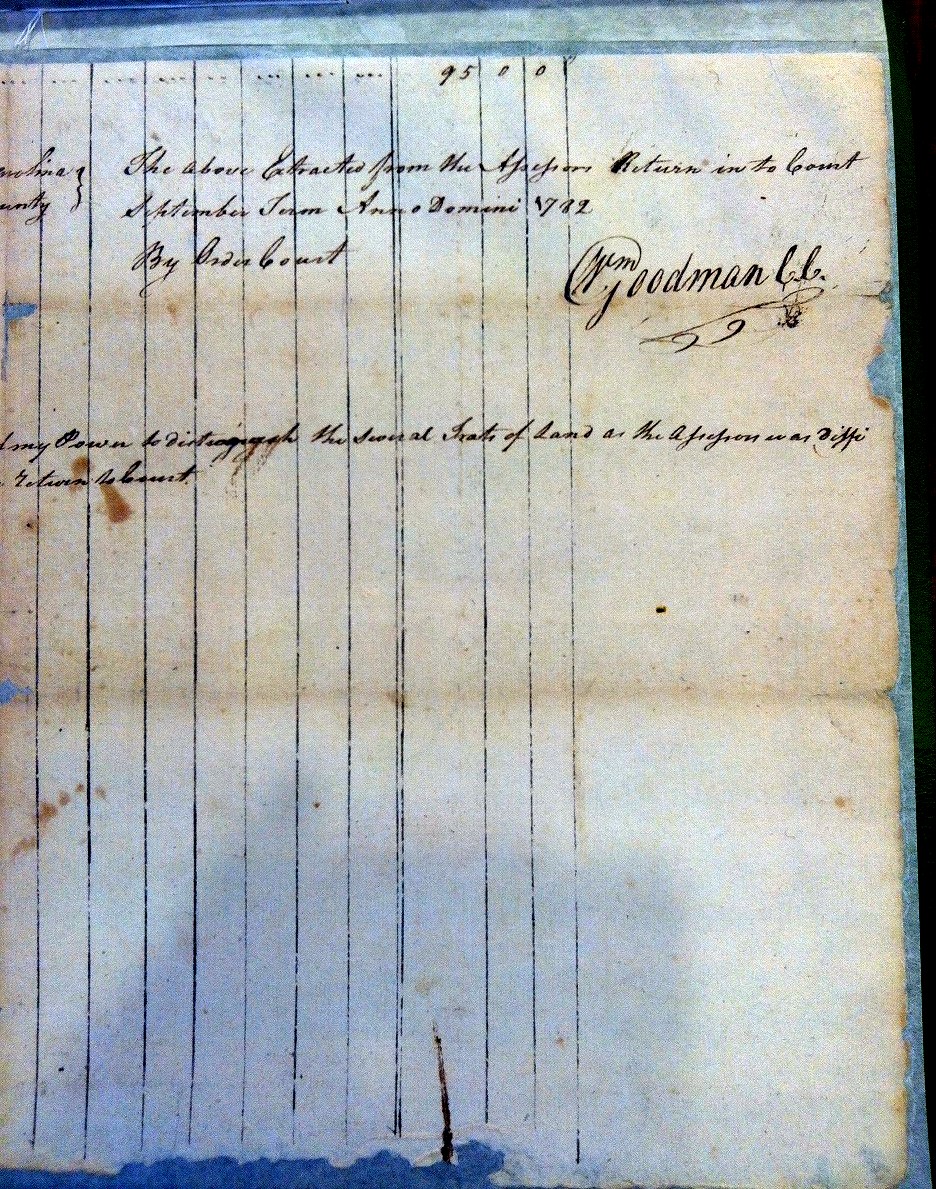 95 0 0
rolina } The above Extracted from the Assessors Return in to Court
unty } September Term Anno Domini 1782
By Order Court
Wm Goodman C.C.
my Power to distinguish the several Trats of Land as the Assessors was Diffi
Return to Court.